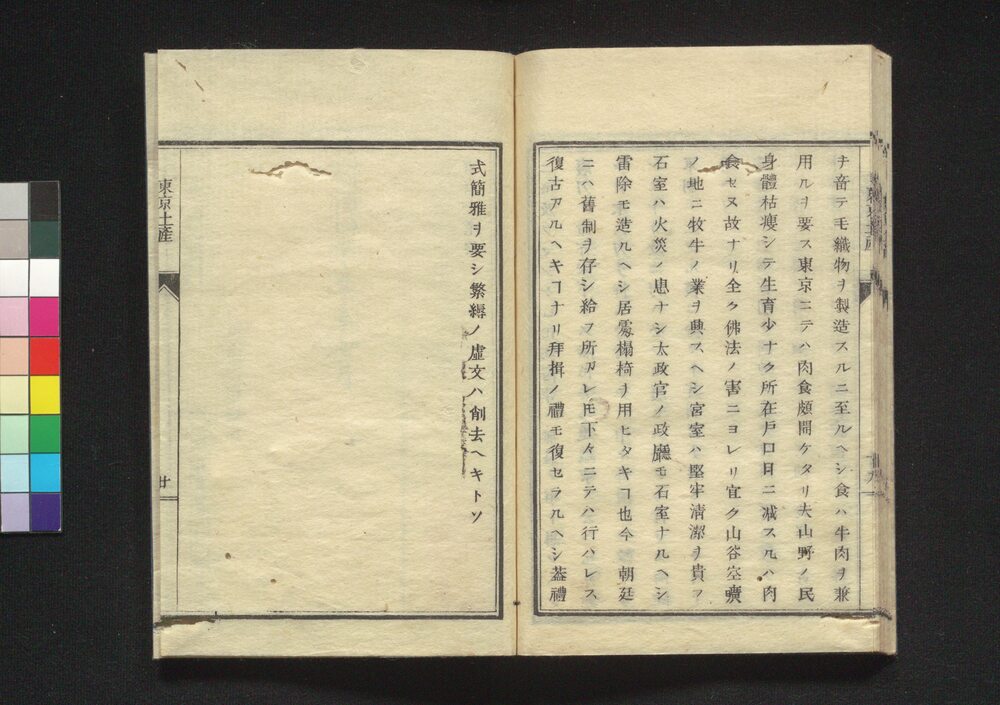 チ奇テモ織物ヲ製造スルニ至ルヘシ食ハ牛肉ヲ兼
用ルヲ要ス東京ニテハ肉食頗開ケタリ夫山野ノ民
身體枯痩シテ生育少ナク所在戸口日ニ减スルハ肉
食セヌ故ナリ全ク佛法ノ害ニヨレリ宜ク山谷空曠
ノ地ニ牧牛ノ業ヲ興スヘシ宮室ハ堅牢清潔ヲ貴フ
石室ハ火災ノ患ナシ太政官ノ政廳モ石室ナルヘシ
雷除モ造ルヘシ居處榻椅ヲ用ヒタキヿ也今朝廷
ニハ舊制ヲ存シ給フ所アレ𪜈下々ニテハ行ハレス
復古アルヘキヿナリ拜揖ノ禮モ復セラルヘシ葢禮
式簡雅ヲ要シ繁縟ノ虚文ハ削去ヘキトソ
東京土產
廿